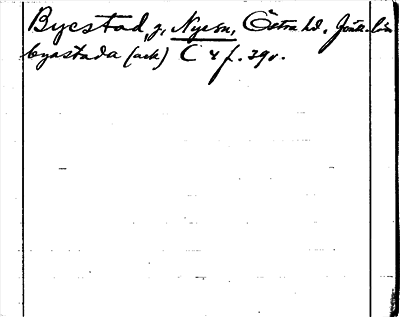 Byestad, g, Nyeson, Östra hd, Jönk. län
byastada (ack) C 4 f. 39v.